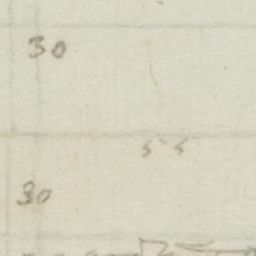 30
55
30